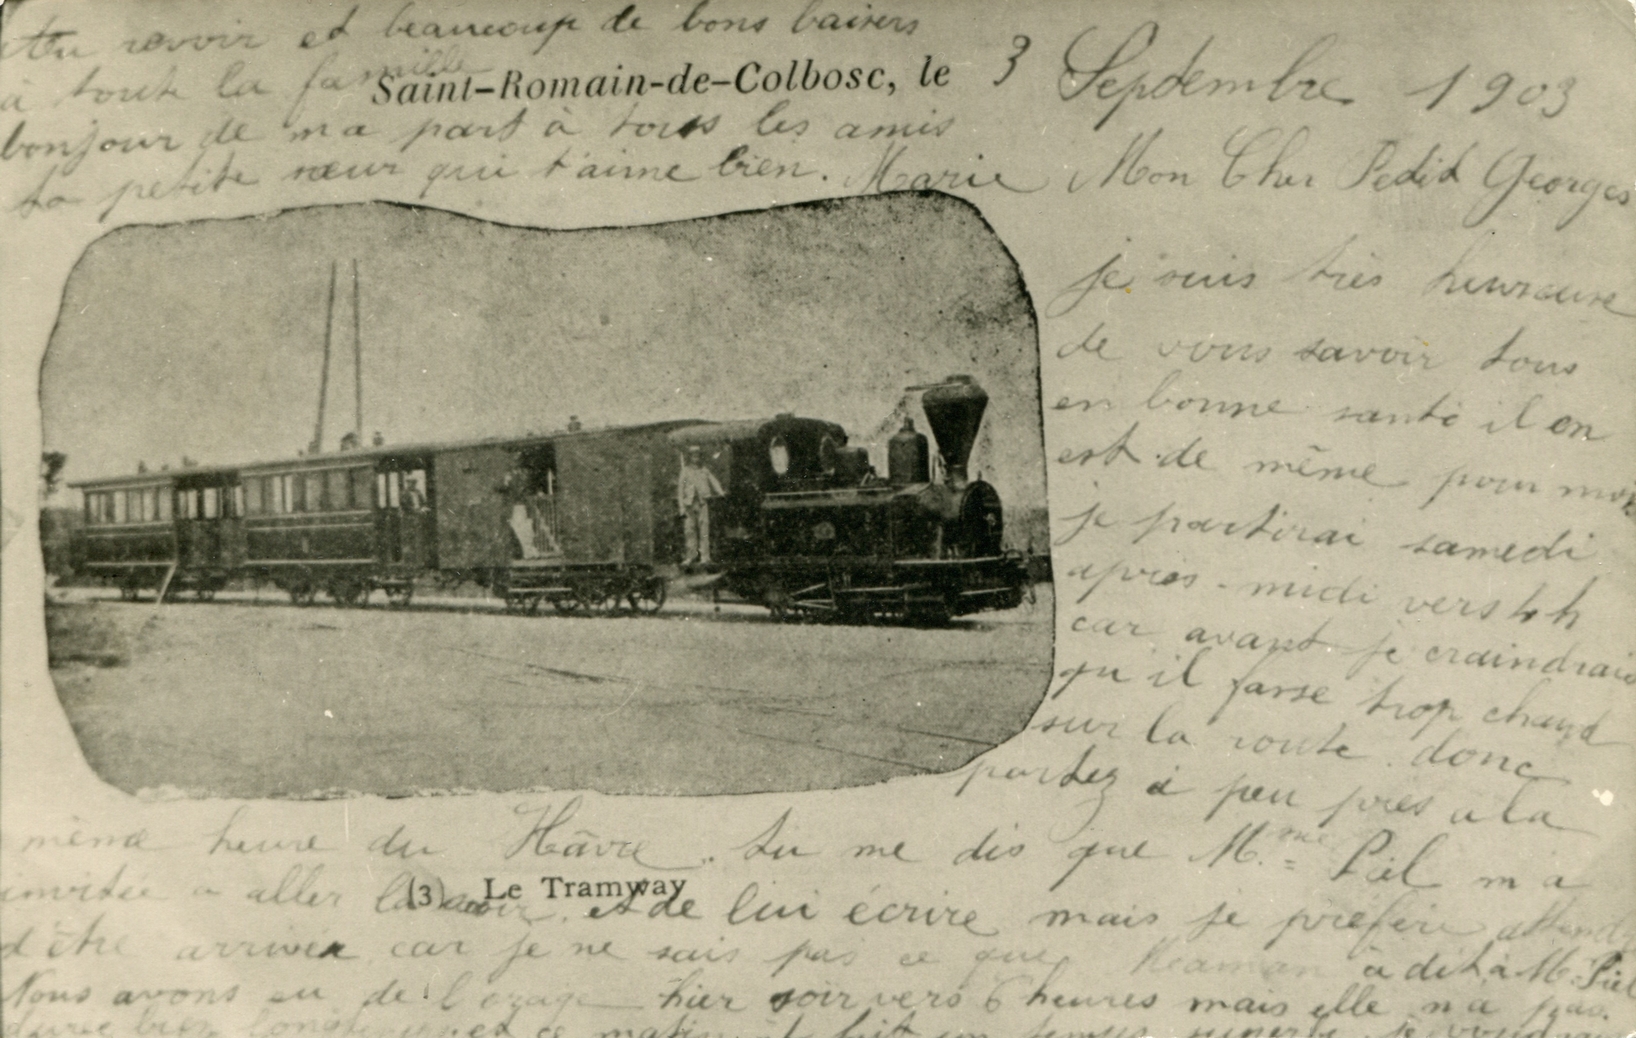 Saint-Romain-de-Colbosc, le 3 Septembre 1903
Mon Cher Petit Georges
je suis très heureuse
de vous savoir tous
en bonne santé il en
est de même pour moi
je partirai samedi
après-midi vers 4 h
car avant je craindrais
qu'il fasse trop chaud
sur la route. donc
partez à peu près a la
même heure du Hâvre. tu me dis que M.me Piel m a
invitée a aller la voir. et de lui écrire mais je préfère attendre
d'être arrivée car je ne sais pas ce que a dit à M. Piel
Nous avons eu de l'orage hier soir vers 6 heures mais elle n'a pas
durée bien longtemps ce matin il fait un temps superbe je voudrais
Au revoir et beaucoup de bons baisers
à toute la famille
bonjour de ma part à tous les amis
ta petite sœur qui t'aime bien. Marie
(3) Le Tramway